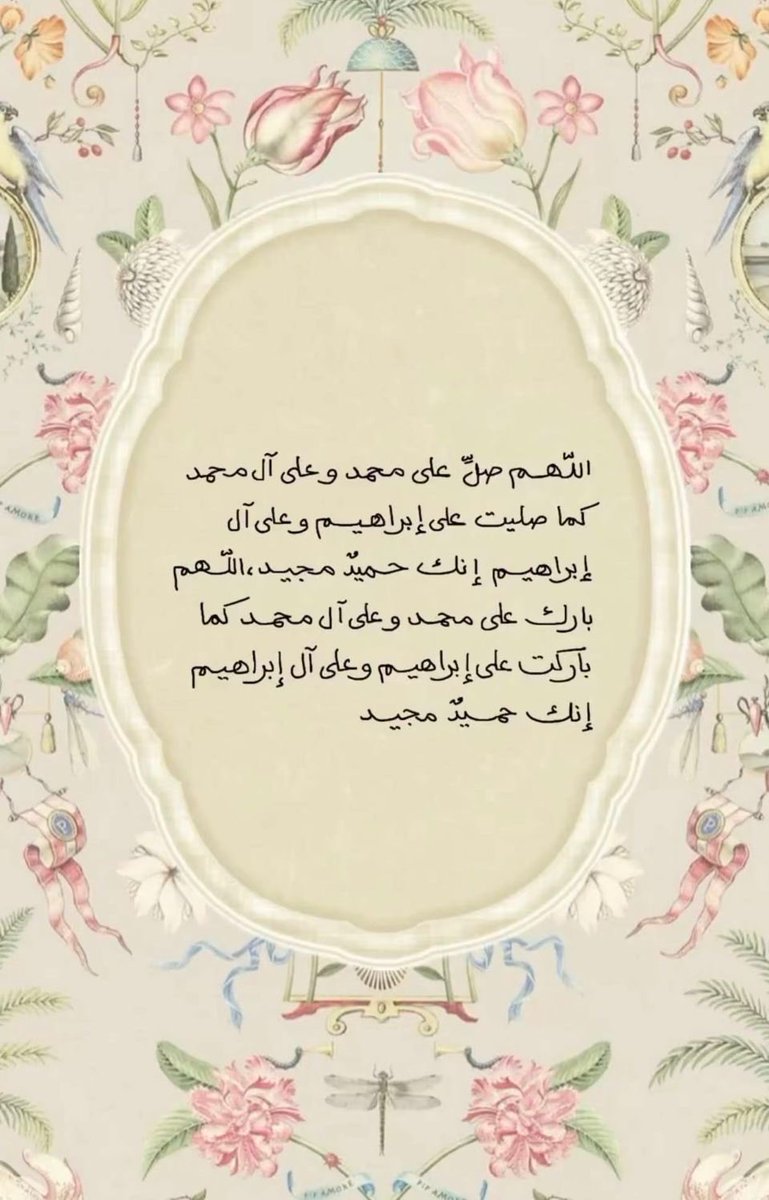 اللّهم صلِّ على محمد وعلى آل محمد
كما صليت على إبراهيم وعلى آل
إبراهيم إنك حميدٌ مجيد، اللّهم
بارك على محمد وعلى آل محمد كما
باركت على إبراهيم وعلى آل إبراهيم
إنك حميدٌ مجيد
PIP AMORE
PIP AMORE